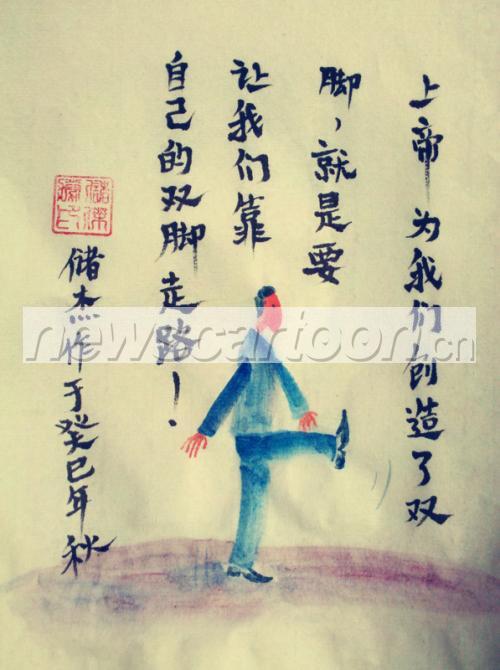 上帝为我们创造了双
脚，就是要
让我们靠
自己的双脚走路！
储杰作于癸巳年秋
newscartoon.cn